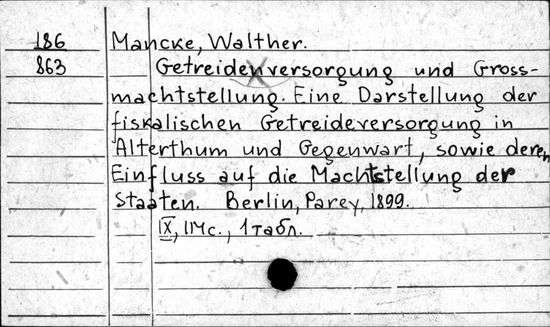 186 Mancke, Walther.
863 Getreidenversorgung und Gross-
machtstellung. Eine Darstellung der
fiskalischen Getreideversorgung in
Alterthum und Gegenwart, sowie deren
Einfluss auf die Machtstellung der
Staaten. Berlin, Parey, 1899.
IX, 111с., 1 табл.